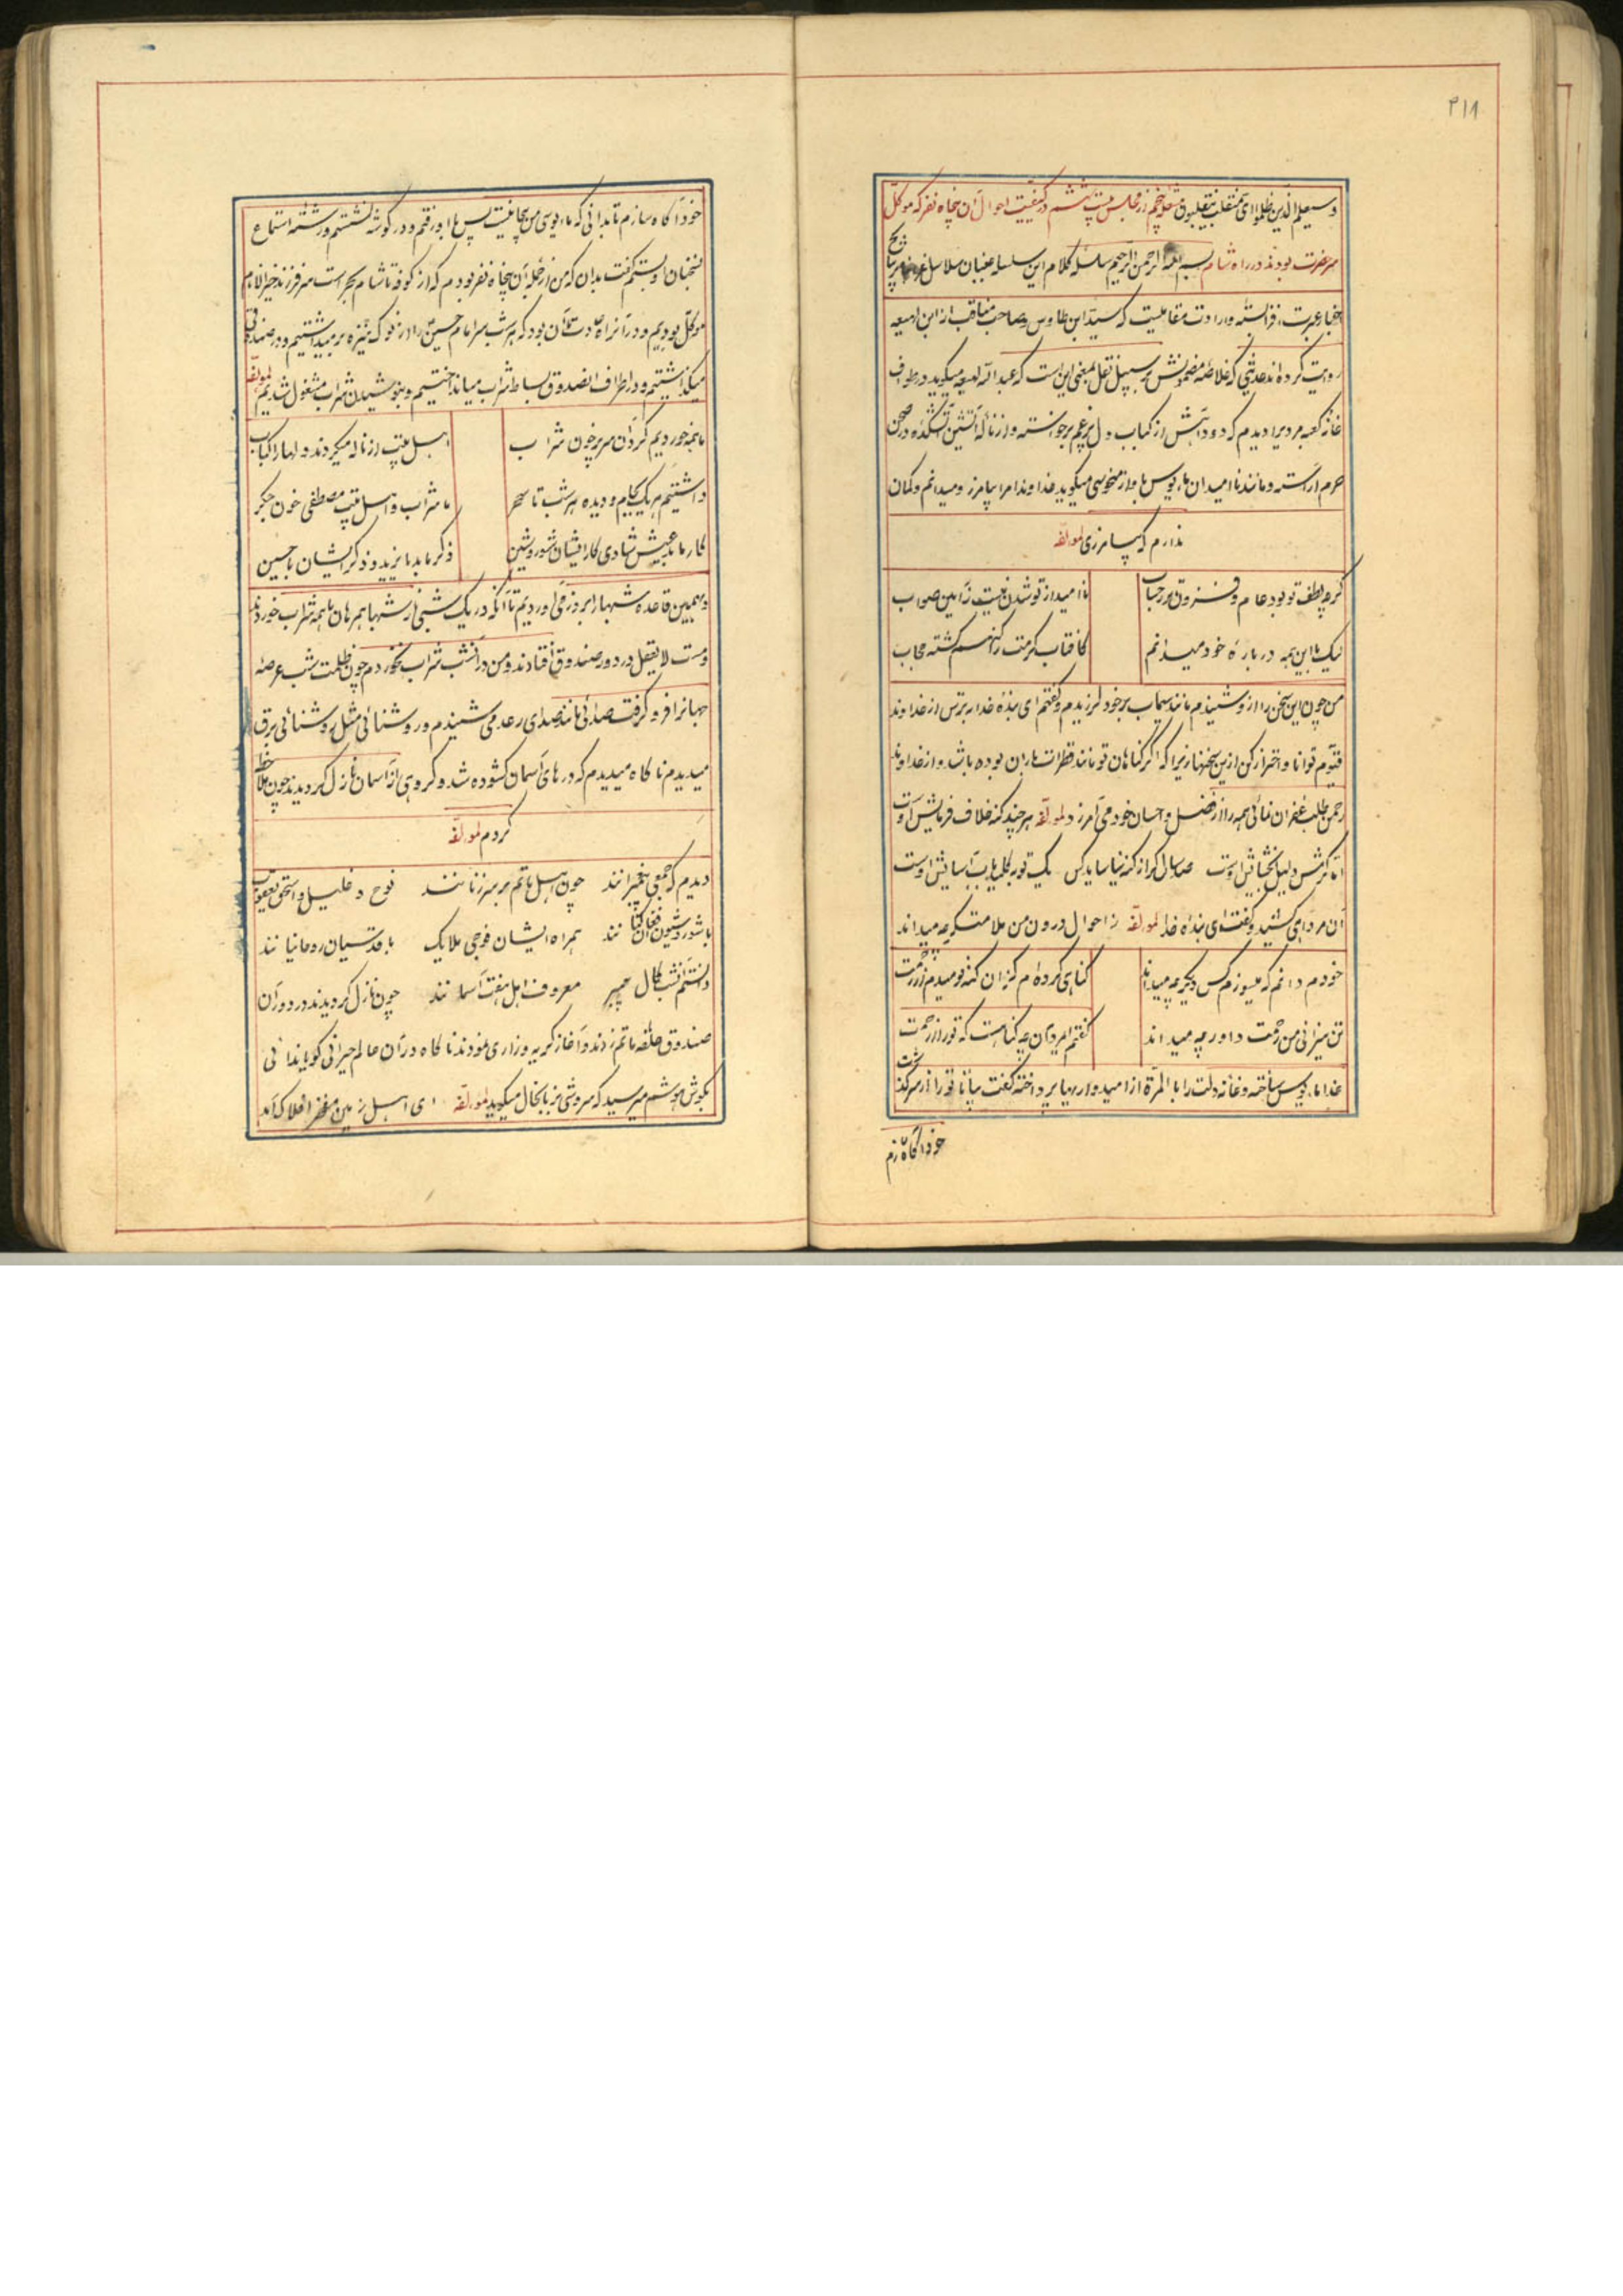 ۳۱۸
و سیعلم الذین ظلموا ای منقلب ینقلبون شعله پنجم از مجلس بیست ششم در کیفیت احوال آن پنجاه نفر که موکل
سر حضرت بودند در راه شام بسم الله الرحمن الرحیم سلسله کلام این سلسله عنبیان سلاسل
اخبار عبرت قرانست و ارادت مقالیست که سید ابن طاوس و صاحب مناقب از ابن لهیعه
روایت کرده اند حدیثی که خلاصه مضمونش بر سبیل نقل بمعنی این است که عبد الله لهیعه میگوید در طواف
خانه کعبه مردیرا دیدم که دود آتش از کباب دل پر غم برخواسته و از ناله آتشین آتشکده در صحن
حرم آراسته و مانند نا امیدان مایوس با آواز منحوسی میگوید خداوندا مرا بیامرز و میدانم و گمان
ندارم که بیامرزی لمولفه
گرچه لطف تو بود عام و فزون در حساب
نا امید از تو شدن نیست ز آیین صواب
لیک با این همه در باره خود میدانم
کافتاب کرمت را کنهم گشته حجاب
من چون این سخن را از وی شنیدم مانند سیماب بر خود لرزیدم و گفتم ای بنده خدا بترس از خداوند
قیوم توانا و احتراز کن ازین سخنها زیرا که اگر گناهان تو مانند قطرات باران بوده باشد و از خداوند
رحمن طلب غفران نمائی همه را از فضل و احسان خود می آمرزد لمولفه هر چند کنه خلاف فرمایش اوست
اما کرمش دلیل بخشایش اوست صد سال اگر از کنه نیاساید کس یک توبه کلید باب آسایش اوست
آن مرد آهی کشید و گفت ای بنده خدا لمولفه ز احوال درون من ملامتگر چه میداند
خودم دانم که میسوزم کس دیگر چه میداند
گناهی کرده ام کز آن کنه نومیدم از رحمت
تن میزانی من رحمت داور چه میداند
گفتم ای مرد آن چه گناهست که تو را از رحمت
خدا مایوس ساخته و خانه دلت را با المره از امیدواریها پرداخته گفت بیا تا تو را از سرگذشت
خود آگاه سازم
خود آگاه سازم تا بدانی که مایوسی من بیجا نیست پس با او رفتم و در گوشه نشستم و رشته استماع
بسخنان او بستم گفت بدان که من از جمله آن پنجاه نفر بودم که از کوفه تا شام بحراست سر فرزند خیر الانام
موکل بودیم و در آن راه عادت ما آن بود که هر شب سر امام حسین را از نوک نیزه بر میداشتیم و در صندوقی
میگذاشتیم و در اطراف آن صندوق بساط شراب میانداختیم و بنوشیدن شراب مشغول شدیم لمولفه
ما همه خوردیم گرد آن سر پر خون شراب
اهل بیت از ناله میکردند دلها را کباب
داشتیم هر یک بجام و دیده هر شب تا سحر
ما شراب و اهل بیت مصطفی خون جگر
کار ما بد عیش شادی کار ایشان شور و شین
ذکر ما بد یا یزید و ذکر ایشان یا حسین
و بهمین قاعده شبها را بروز می آوردیم تا آنکه در یک شبی از شبها همرهان ما همه شراب خوردند
و مست لا یعقل در دور صندوق افتادند و من در آنشب شراب نخوردم چون ظلمت شب عرصه
جهانرا فرو گرفت صدائی مانند صدای رعد می شنیدم و روشنائی مثل روشنائی برق
میدیدم ناگاه میدیدم که درهای آسمان گشوده شد و گروهی از آسمان نازل گردیدند چون ملاحظه
کردم لمولفه
دیدم که جمعی پیغمبرانند چون اهل ماتم بر سر زنانند نوح و خلیل و اسحق و یعقوب
با شور و شیون فغان کنانند همراه ایشان فوجی ملایک با قدسیان روحانیانند
دانستم آنشب کمال معروف اهل هفت آسمانند چون نازل گردیدند در دور آن
صندوق حلقه ماتم زدند و آغاز گریه و زاری نمودند ناگاه در آن عالم حیرانی گویا ندائی
بگوش هوشم میرسید که سروشی بزبانحال میگوید لمولفه ای اهل زمین مفخر افلاک آمد